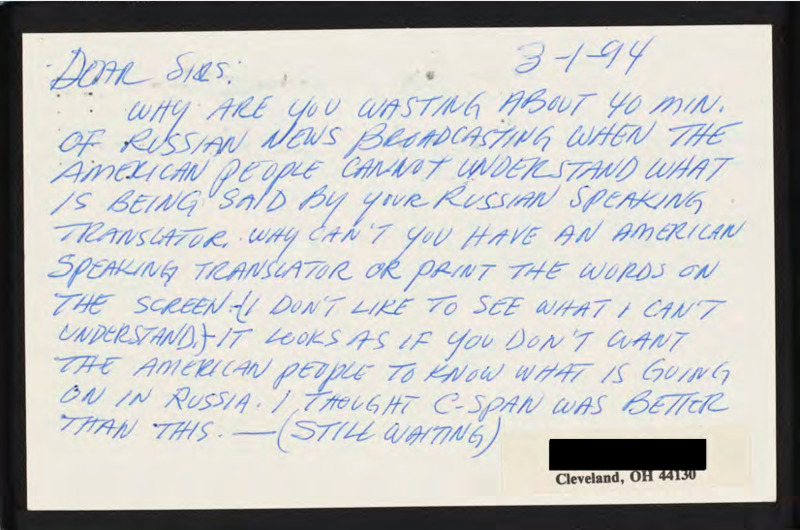 3-1-94
DEAR SIRS:
WHY ARE YOU WASTING ABOUT 40 MIN.
OF RUSSIAN NEWS BROADCASTING WHEN THE
AMERICAN PEOPLE CANNOT UNDERSTAND WHAT
IS BEING SAID BY YOUR RUSSIAN SPEAKING
TRANSLATOR. WHY CAN'T YOU HAVE AN AMERICAN
SPEAKING TRANSLATOR OR PRINT THE WORDS ON
THE SCREEN-(I DON'T LIKE TO SEE WHAT I CAN'T
UNDERSTAND.)-IT LOOKS AS IF YOU DON'T WANT
THE AMERICAN PEOPLE TO KNOW WHAT IS GOING
ON IN RUSSIA. I THOUGHT C-SPAN WAS BETTER
THAN THIS. — (STILL WAITING)
Cleveland, OH 44130